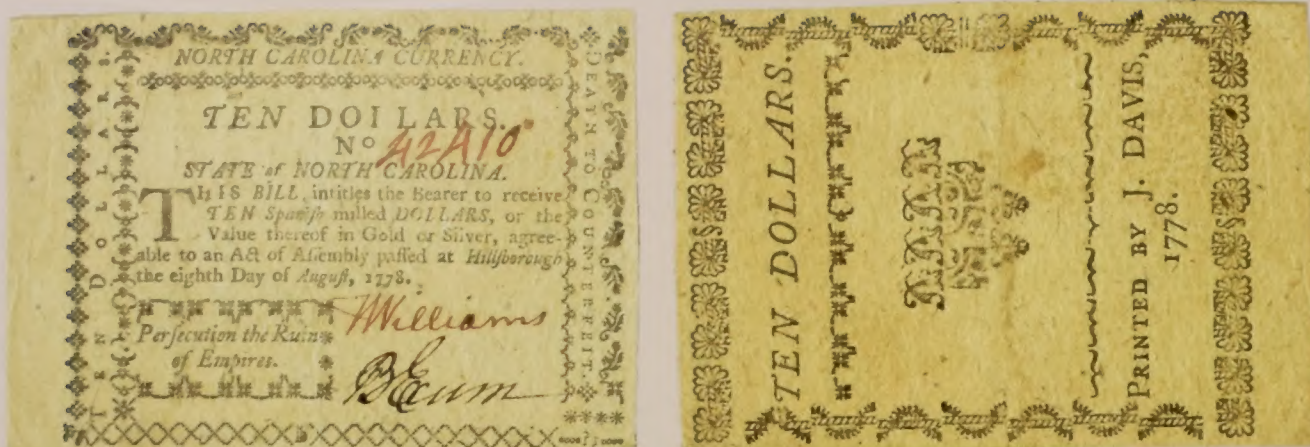 NORTH CAROLINA CURRENCY.
TEN DOLLARS.
No 42410
STATE of NORTH CAROLINA.
THIS BILL intitles the Bearer to receive
TEN Spanish milled DOLLARS, or the
Value thereof in Gold or Silver, agree-
able to an Act of Assembly passed at Hillsborough
the eighth Day of August, 1778.
Persecution the Ruin
of Empires.
WWilliams
BExum
TEN DOLLARS.
DEATH TO COUNTERFEIT.
TEN DOLLARS.
PRINTED BY J. DAVIS,
1778.